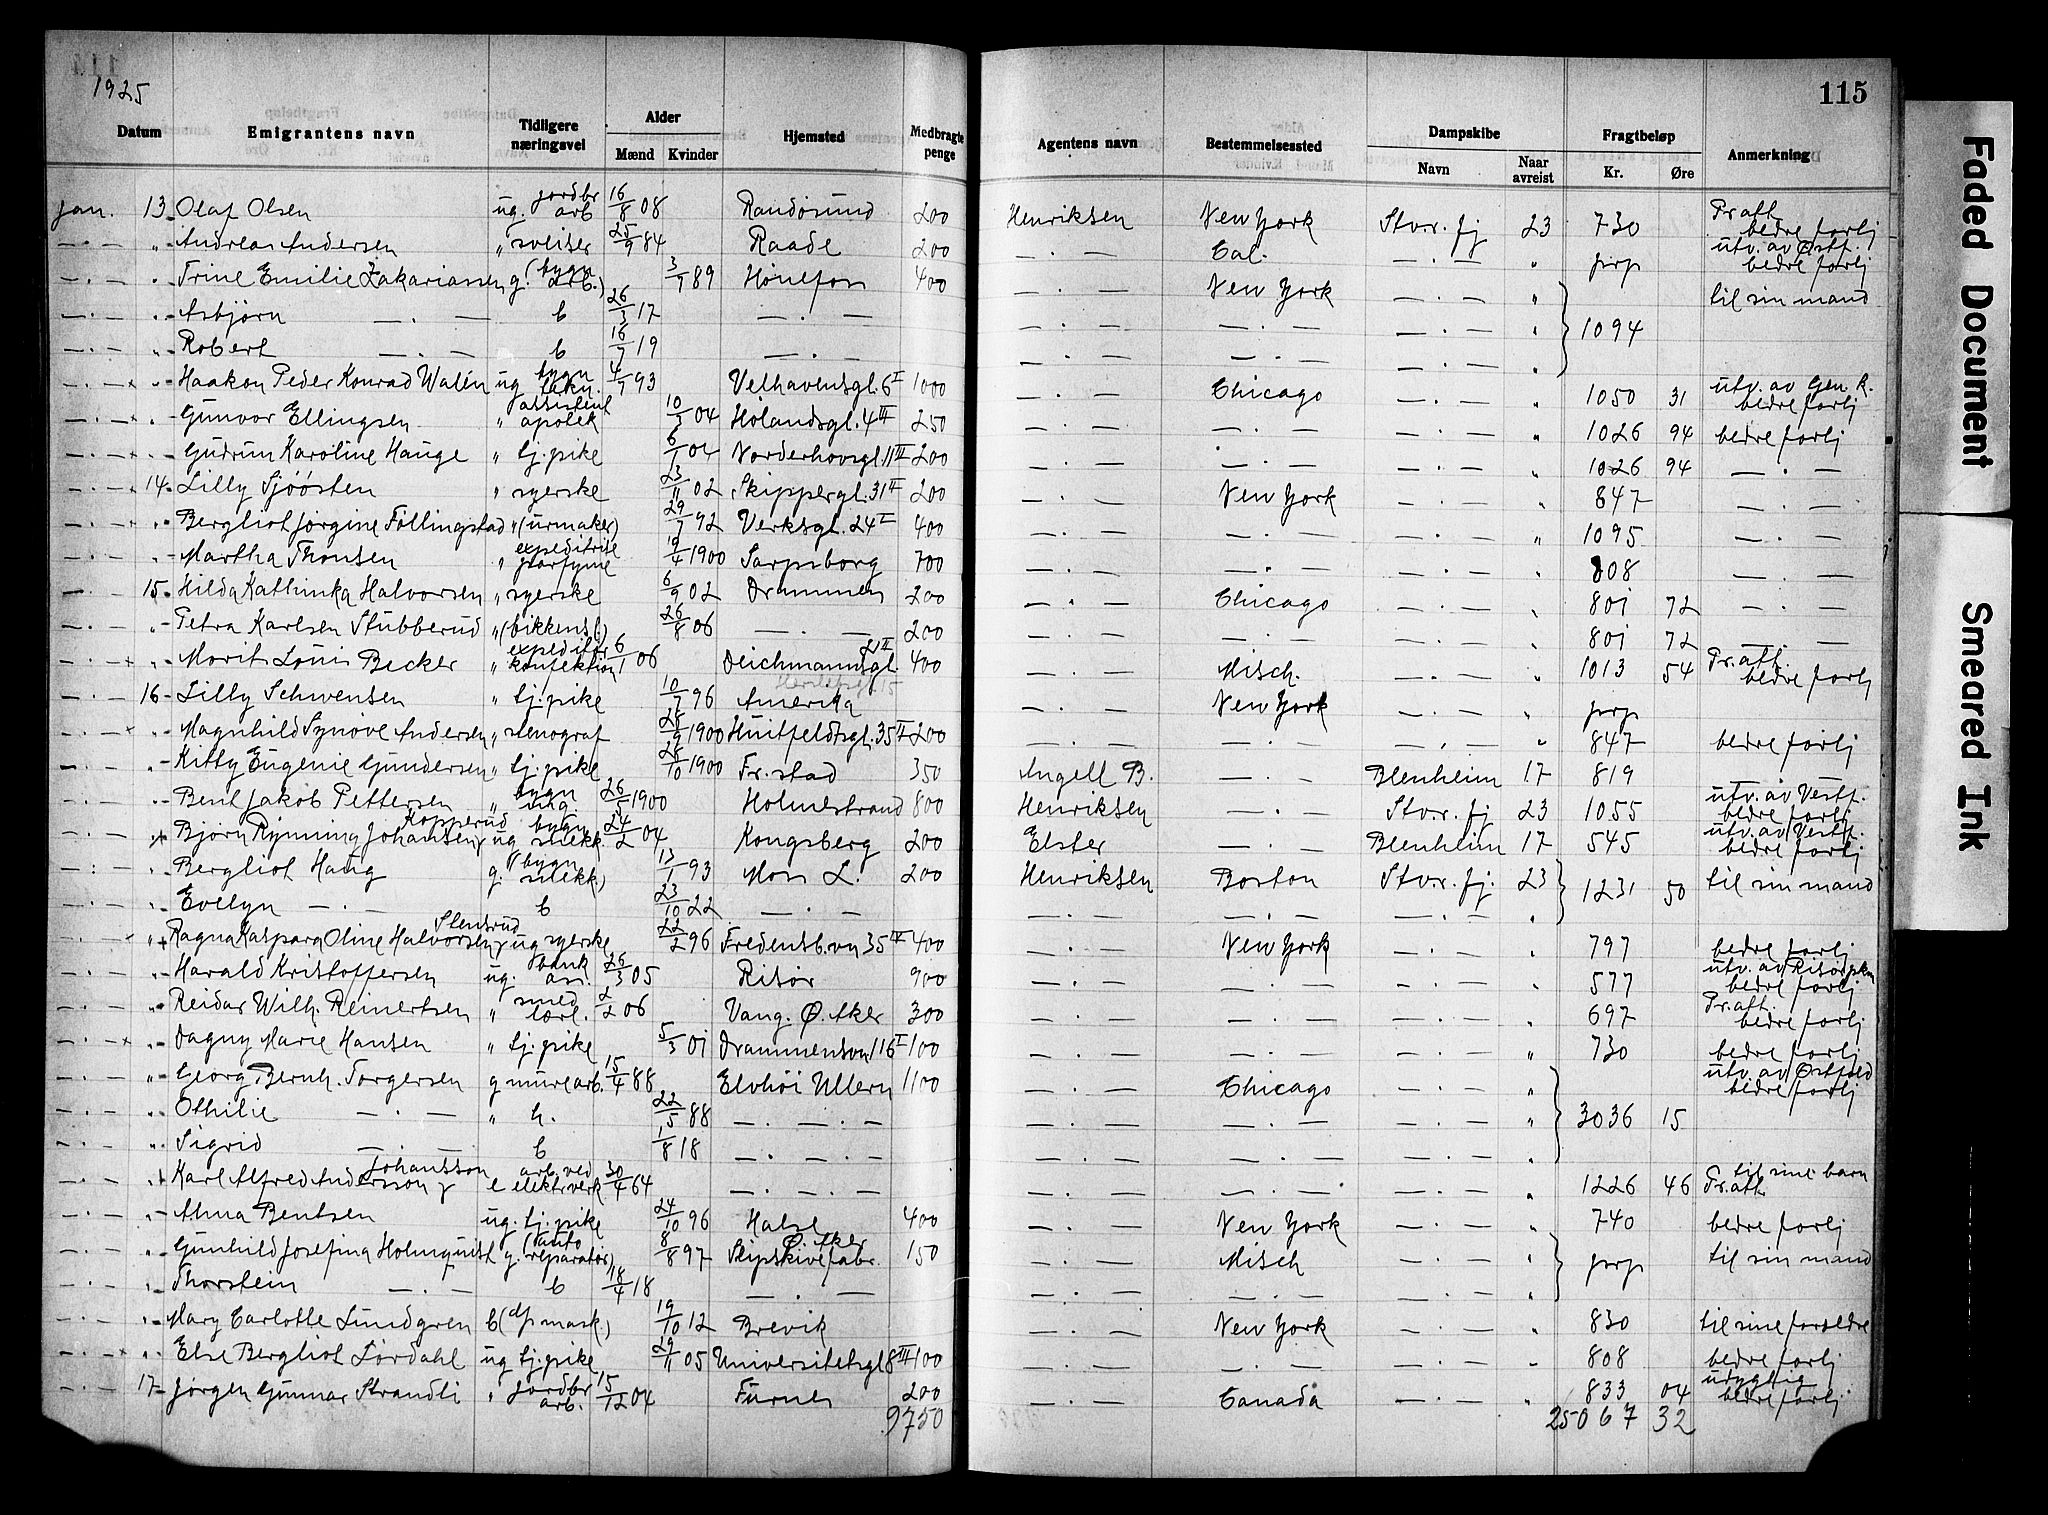 1925
115
Datum Emigrantens navn Tidligere næringsvei Alder Mænd Kvinder Hjemsted Medbragte penge Agentens navn Bestemmelsessted Dampskibe Navn Naar avreist Fragtbeløp Kr. Øre Anmerkning
Jan. 13 Olaf Olsen ug. jordbr arb 16/8 08 Randøsund 200 Henriksen New York Stv.r. fj 23 730 Pr. att. bedre forlj
— . — " Andreas Andersen " sveiser 25/9 84 Raade 200 — . — Cal. — . — " prp utv. av Østf. bedre forlj
— . — " Trine Emilie Zakariassen g. (bygn arb.) 3/7 89 Hønefoss 400 — . — New York — . — " til sin mand
— . — " Asbjørn — . — b 26/3 17 — . — — . — — . — — . — " 1094
— . — " Robert — . — b 16/7 19 — . — — . — — . — — . — "
— . — " Haakon Peder Konrad Walén ug bygn tekn. 4/7 93 Velhavensgt. 6 I 1000 — . — Chicago — . — " 1050 31 utv. av Gen. K. bedre forlj
— . — " Gunvor Ellingsen " assistent apotek 10/3 04 Hølandsgt. 4 III 250 — . — — . — — . — " 1026 94 bedre forlj
— . — " Gudrun Karoline Hauge " tj. pike 6/1 04 Norderhovsgt 11 III 200 — . — — . — — . — " 1026 94 — . —
— . — 14 Lilly Sjøøsten " syerske 23/11 02 Skippergt. 31 II 200 — . — New York — . — " 847 — . —
— . — " Bergliot Jørgine Føllingstad " (urmaker) 29/7 92 Verksgt. 24 I 400 — . — — . — — . — " 1095 — . —
— . — " Martha Thonsen " expeditrise 19/4 1900 Sarpsborg 700 — . — — . — — . — " 808 — . —
— . — 15 Hilda Kathinka Halvorsen " syerske 6/9 02 Drammen 200 — . — Chicago — . — " 801 72 — . —
— . — " Petra Karlsen Stubberud " 26/8 06 — . — 200 — . — — . — — . — " 801 72 — . —
— . — " Morits Louis Becker " expeditør konfektion 6/1 06 Deichmannsgt. 400 — . — Misch. — . — " 1013 54 Pr. att. bedre forlj
— . — 16 Lilly Schwensen " tj. pike 10/7 96 Amerika — . — New York — . — " prp
— . — " Magnhild Synøve Andersen " stenograf 28/9 1900 Huitfeldtsgt. 35 II 200 — . — — . — — . — " 847 bedre forlj
— . — " Kitty Eugenie Gundersen " tj. pike 28/10 1900 Fr.stad 350 Angell B. — . — Blenheim 17 819
— . — " Bent Jakob Pettersen " bygn ing. 26/5 1900 Holmestrand 800 Henriksen — . — Stv.r. fj 23 1055 utv. av Vestf. bedre forlj
— . — " Bjørn Rynning Johansen Kopperud ug bygn snekk. 24/2 04 Kongsberg 200 Elster — . — Blenheim 17 545 utv. av Vestf. bedre forlj
— . — " Bergliot Haug g. (bygn snekk) 13/1 93 Moss L. 200 Henriksen Boston Stv.r. fj. 23 1231 50 til sin mand
— . — " Evelyn — . — b 23/10 22 — . — — . — — . — — . — "
— . — " Ragna Kaspara Oline Halvorsen Stensrud ug syerske 22/2 96 Fredensb.vn 35 IV 400 — . — New York — . — " 797 bedre forlj
— . — " Harald Kristoffersen ug. bank ass. 26/3 05 Risør 900 — . — — . — — . — " 577 utv. av Risør pkm bedre forlj
— . — " Reidar Wilh. Reinertsen " smed lærl. 2/2 06 Vang. Ø. Aker 300 — . — — . — — . — " 697 Pr. att. bedre forlj
— . — " Dagny Marie Hansen " tj. pike 5/3 01 Drammensvn 116 I 100 — . — — . — — . — " 730 bedre forlj
— . — " Georg Bernh. Torgersen g murearb. 15/4 88 Elvhøi Ullern 1100 — . — Chicago — . — " utv. av Østfold bedre forlj
— . — " Othilie — . — " h. 22/5 88 — . — — . — — . — — . — " 3036 15
— . — " Sigrid — . — b 1/8 18 — . — — . — — . — — . — "
— . — " Karl Alfred Andersson Johansson e arb. ved elektr.verk 30/4 64 — . — — . — — . — — . — " 1226 46 til sine barn Pr. att
— . — " Alma Bentsen ug. tj. pike 24/10 96 Halse 400 — . — New York — . — " 740 bedre forlj
— . — " Gunhild Josefina Holmquist g. (auto reparatør) 8/8 97 Ø. Aker Slipskivefabr. 150 — . — Misch — . — " prp til sin mand
— . — " Thorstein — . — b 18/4 18 — . — — . — — . — — . — "
— . — " Mary Carlotte Lundgren b (dp mask) 19/10 12 Brevik — . — New York — . — " 830 til sine foreldre
— . — " Else Bergliot Lørdahl ug tj. pike 29/11 05 Universitetsgt 8 III 100 — . — — . — — . — " 808 bedre forlj
— . — 17 Jørgen Gunnar Strandli " jordbr arb. 15/12 04 Furnes 200 — . — Canada — . — " 833 04 udygtig bedre forlj
9750 25067 32
Faded Document Smeared Ink